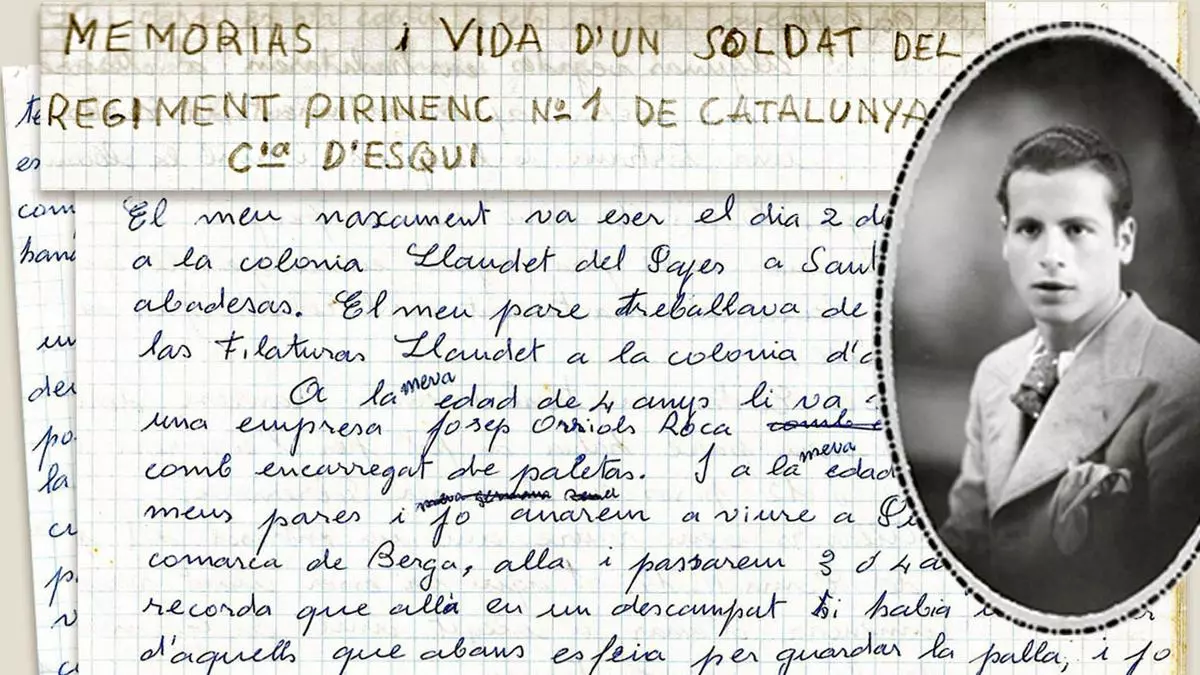 MEMORIAS i VIDA D'UN SOLDAT DEL
REGIMENT PIRINENC Nº 1 DE CATALUNYA
Cia D'ESQUI
El meu naxament va eser el dia 2 de
a la colonia Llaudet del Pajes a Sant
abadesas. El meu pare treballava de
las Filaturas Llaudet a la colonia d'a
A la meva edad de 4 anys li va
una empresa Josep Orriols Roca
comb encarregat de paletas. I a la meva edad
meus pares i jo anarem a viure a
comarca de Berga, alla i passarem 3 o 4 a
recorda que allà en un descampat hi habia
d'aquells que abans esfeia per guardar la palla, i jo
te
es
com
hani
un
des
po
la
cr
p
v